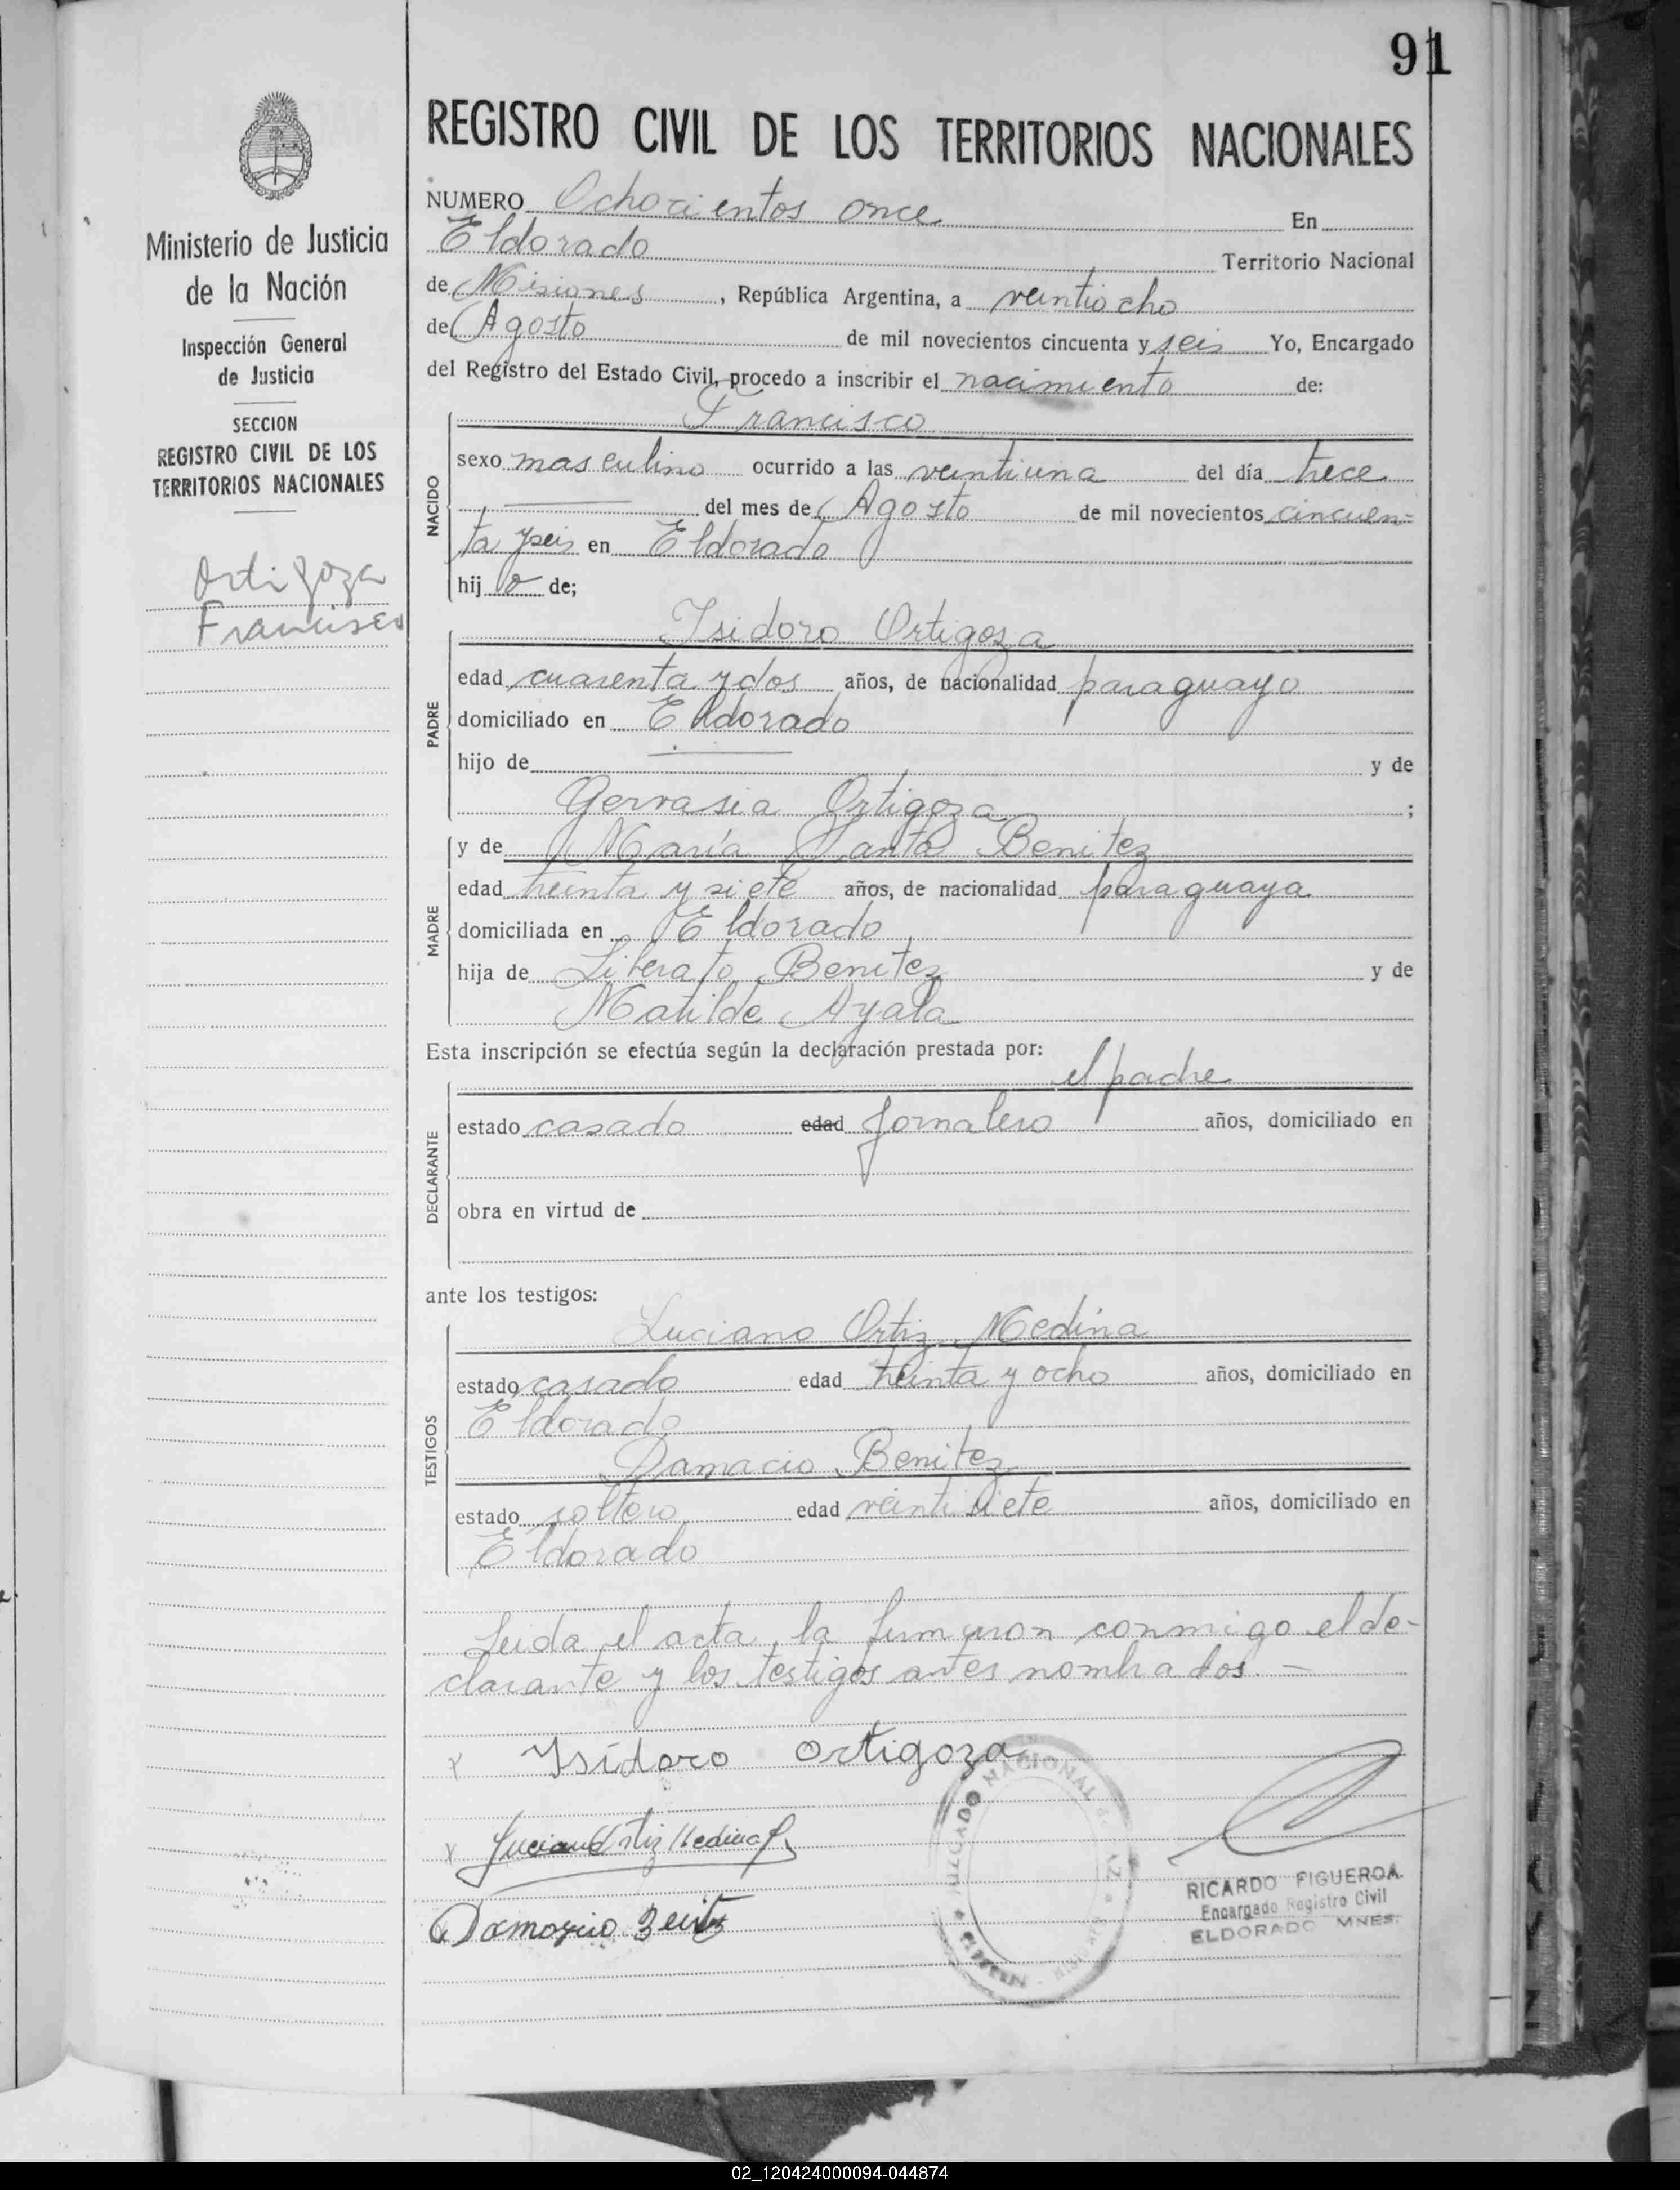 91
REGISTRO CIVIL DE LOS TERRITORIOS NACIONALES
Ministerio de Justicia
de la Nación
Inspección General
de Justicia
SECCION
REGISTRO CIVIL DE LOS
TERRITORIOS NACIONALES
Ortigoza
Francisco
NUMERO Ochocientos once En
Eldorado Territorio Nacional
de Misiones, República Argentina, a veintiocho
de Agosto de mil novecientos cincuenta y seis Yo, Encargado
del Registro del Estado Civil, procedo a inscribir el nacimiento de:
Francisco
NACIDO
sexo masculino ocurrido a las veintiuna del día trece
del mes de Agosto de mil novecientos cincuen=
ta y seis en Eldorado
hijo de;
Isidoro Ortigoza
PADRE
edad cuarenta y dos años, de nacionalidad paraguayo
domiciliado en Eldorado
hijo de y de
Gervasia Ortigoza ;
y de María Santa Benitez
MADRE
edad treinta y siete años, de nacionalidad paraguaya
domiciliada en Eldorado
hija de Liberato Benitez y de
Matilde Ayala
Esta inscripción se efectúa según la declaración prestada por:
el padre
DECLARANTE
estado casado edad Jornalero años, domiciliado en
obra en virtud de
ante los testigos:
Luciano Ortiz Medina
TESTIGOS
estado casado edad treinta y ocho años, domiciliado en
Eldorado
Damacio Benitez
estado soltero edad veintisiete años, domiciliado en
Eldorado
Leida el acta, la firmaron conmigo el de-
clarante y los testigos antes nombrados. -
x Isidoro Ortigoza
x Luciano Ortiz Medina
Damasio Benitez
JUZGADO NACIONAL
RICARDO FIGUEROA
Encargado Registro Civil
ELDORADO MNES.
02_120424000094-044874